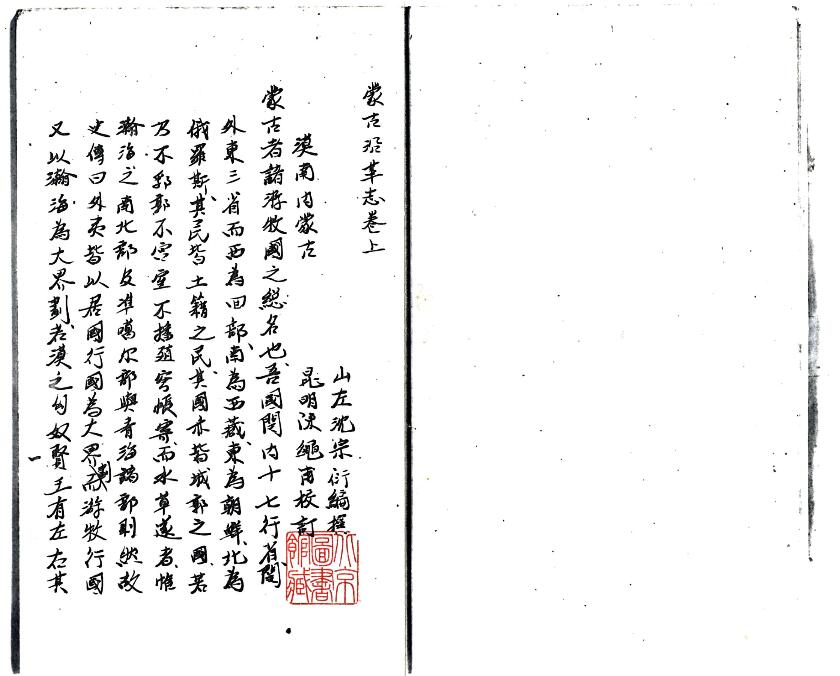 蒙古沿革志卷上
山左沈宗衍編撰
漠南內蒙古
昆明陳繩甫校訂
蒙古者諸游牧國之總名也吾國關內十七行省關
外東三省而西為回部南為西藏東為朝鮮北為
俄羅斯其民皆土籍之民其國亦皆城郭之國若
乃不郛郭不宮室不播殖穹帳寄而水草逐者惟
瀚海之南北部及準噶尔部與青海諸部則然故
史傳曰外夷皆以居國行國為大界劃而游牧行國
又以瀚海為大界劃若漠之匈奴賢王有左右其
北京圖書館藏